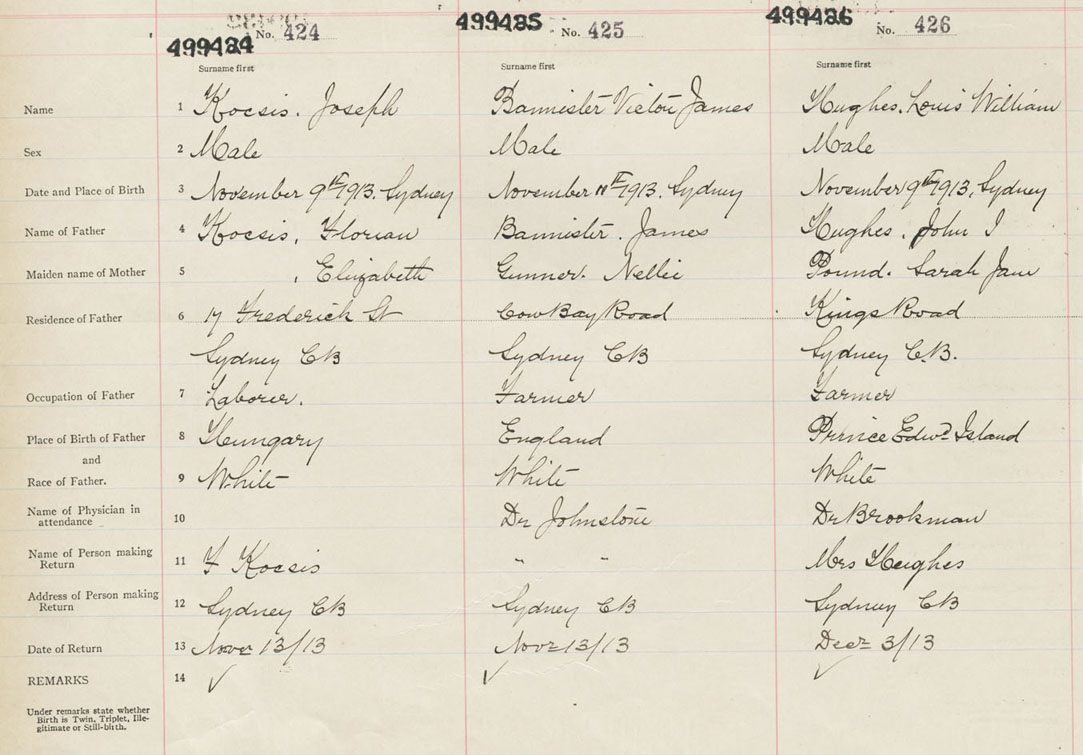 499484 499485 499486
No. 424 No. 425 No. 426
Surname first Surname first Surname first
Name 1 Kocsis. Joseph Bannister Victor James Hughes. Louis William
Sex 2 Male Male Male
Date and Place of Birth 3 November 9th 1913. Sydney November 11th 1913. Sydney November 9th 1913, Sydney
Name of Father 4 Kocsis, Florian Bannister. James Hughes. John J
Maiden name of Mother 5 , Elizabeth Gunner. Nellie Pound. Sarah Jane
Residence of Father 6 17 Frederick St Cow Bay Road Kings Road
Sydney CB Sydney CB Sydney C.B.
Occupation of Father 7 Laborer. Farmer Farmer
Place of Birth of Father 8 Hungary England Prince Edwd Island
and
Race of Father. 9 White White White
Name of Physician in
attendance 10 Dr Johnstone Dr Brookman
Name of Person making
Return 11 F Kocsis " " Mrs Hughes
Address of Person making
Return 12 Sydney CB Sydney CB Sydney CB
Date of Return 13 Novr 13/13 Novr 13/13 Decr 3/13
REMARKS 14 ✓ ✓ ✓
Under remarks state whether
Birth is Twin, Triplet, Ille-
gitimate or Still-birth.